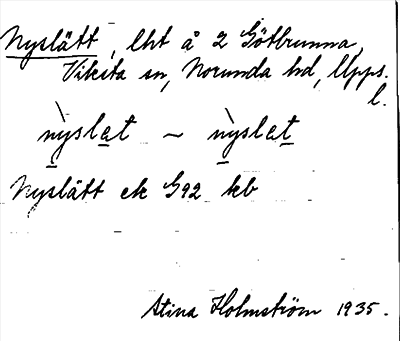 Nyslätt, lht å 2 Götbrunna,
Viksta sn, Norunda hd, Upps.
l.
nỳslet ~ nỳslet
Nyslätt ek G92 kb
Stina Holmström 1935.